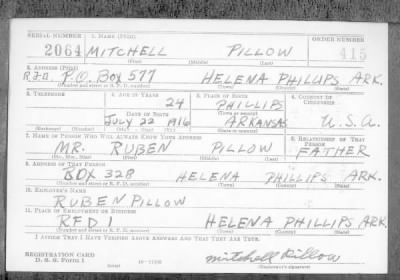 SERIAL NUMBER 1. NAME (Print) ORDER NUMBER
2064 MITCHELL PILLOW 415
(First) (Middle) (Last)
2. ADDRESS (Print)
R.F.D. P.O. BOX 577 HELENA PHILLIPS ARK.
(Number and street or R. F. D. number) (Town) (County) (State)
3. TELEPHONE 4. AGE IN YEARS 5. PLACE OF BIRTH 6. COUNTRY OF CITIZENSHIP
24 PHILLIPS
DATE OF BIRTH (Town or county)
JULY 22 1916 ARKANSAS U.S.A.
(Exchange) (Number) (Mo.) (Day) (Yr.) (State or country)
7. NAME OF PERSON WHO WILL ALWAYS KNOW YOUR ADDRESS 8. RELATIONSHIP OF THAT PERSON
MR. RUBEN PILLOW FATHER
(Mr., Mrs., Miss) (First) (Middle) (Last)
9. ADDRESS OF THAT PERSON
BOX 328 HELENA PHILLIPS ARK.
(Number and street or R. F. D. number) (Town) (County) (State)
10. EMPLOYER'S NAME
RUBEN PILLOW
11. PLACE OF EMPLOYMENT OR BUSINESS
RFD 1 HELENA PHILLIPS ARK
(Number and street or R. F. D. number) (Town) (County) (State)
I AFFIRM THAT I HAVE VERIFIED ABOVE ANSWERS AND THAT THEY ARE TRUE.
REGISTRATION CARD
D. S. S. Form 1 (over) 16—17105 Mitchell Pillow
(Registrant's signature)